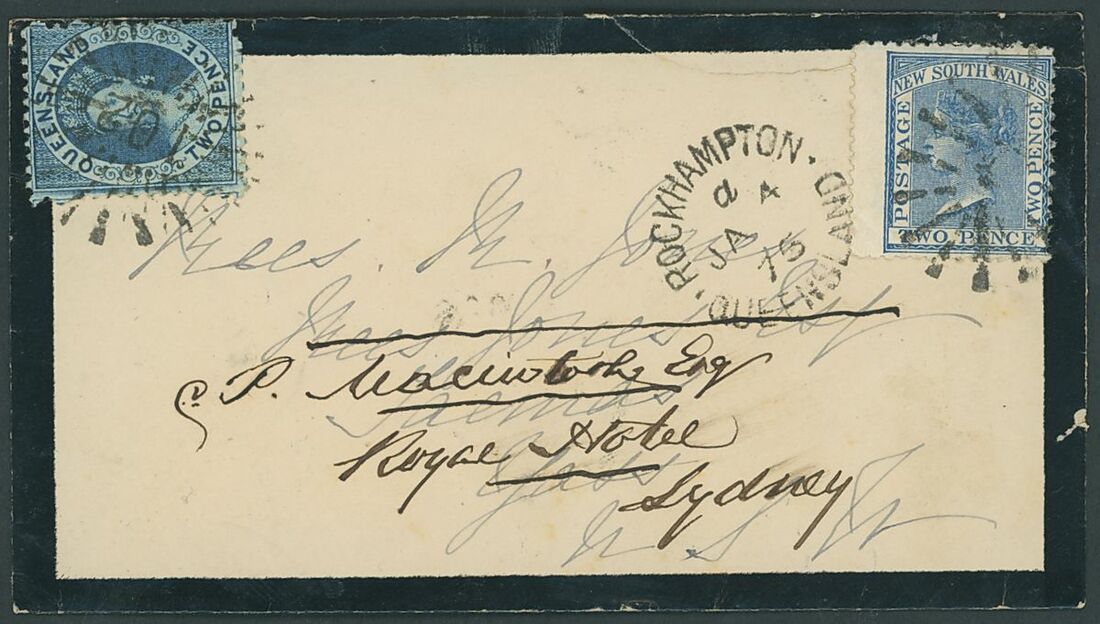 QUEENSLAND TWO PENCE
NEW SOUTH WALES
POSTAGE
TWO PENCE
TWO PENCE
ROCKHAMPTON.
A
JA
75
QUEENSLAND
M. Jones
Jones Esq
P. Macintosh Esq
Royal Hotel
Yass
Sydney
N S W